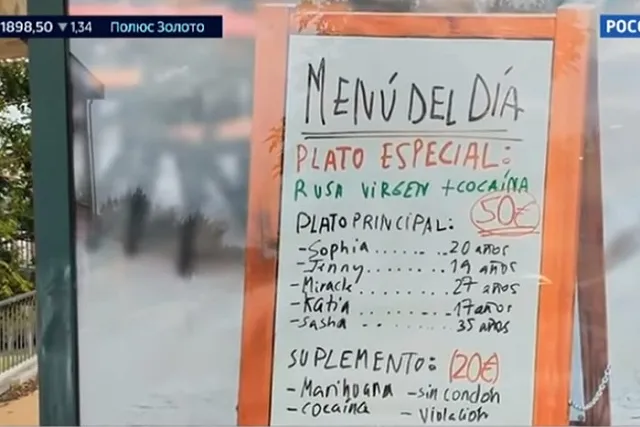 1898,50 ▼1,34 Полюс Золото
РОСС
MENÚ DEL DÍA
PLATO ESPECIAL:
RUSA VIRGEN + COCAÍNA
50€
PLATO PRINCIPAL:
- Sophia ........ 20 años
- Jenny ........ 19 años
- Miracle ........ 27 años
- Katia ........ 17 años
- Sasha ........ 35 años
SUPLEMENTO: (20€)
- Marihuana - sin condon
- cocaína - violación